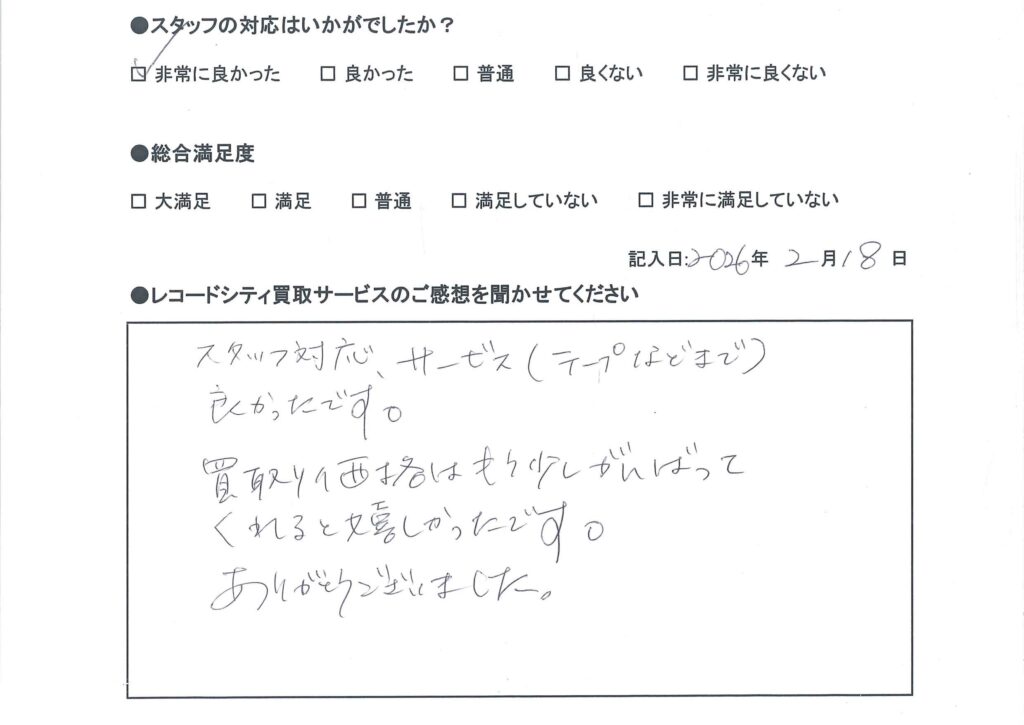 ●スタッフの対応はいかがでしたか？
☑ 非常に良かった □ 良かった □ 普通 □ 良くない □ 非常に良くない
●総合満足度
□ 大満足 □ 満足 □ 普通 □ 満足していない □ 非常に満足していない
記入日:2026年 2月18日
●レコードシティ買取サービスのご感想を聞かせてください
スタッフ対応、サービス(テープなどまで)
良かったです。
買取り価格はもう少しがんばって
くれると嬉しかったです。
ありがとうございました。